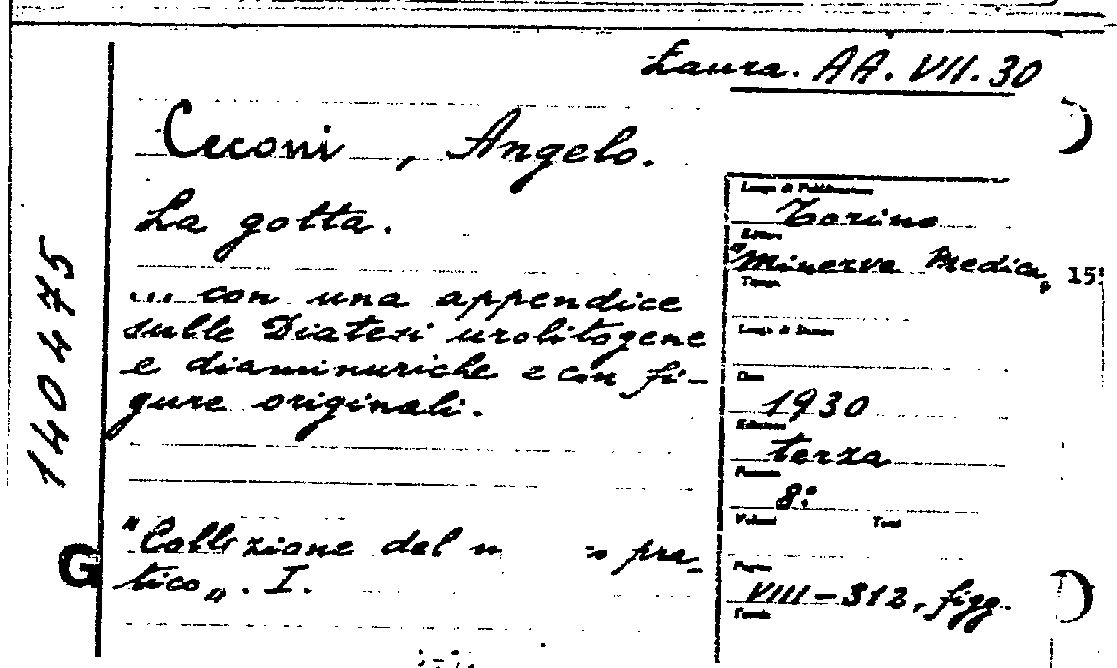 Laura. AA. VII. 30
Ceconi, Angelo.
La gotta.
... con una appendice
sulle Diatesi urolitogene
e diaminuriche e con fi-
gure originali.
"Collezione del pra-
tico„. I.
140475
G
Luogo di Pubblicazione
Torino
Editore
"Minerva Medica„
15
Luogo di Stampa
Data
1930
Edizione
terza
Formato
8:
Volumi Tomi
Pagine
VIII-312, figg.
Tavole